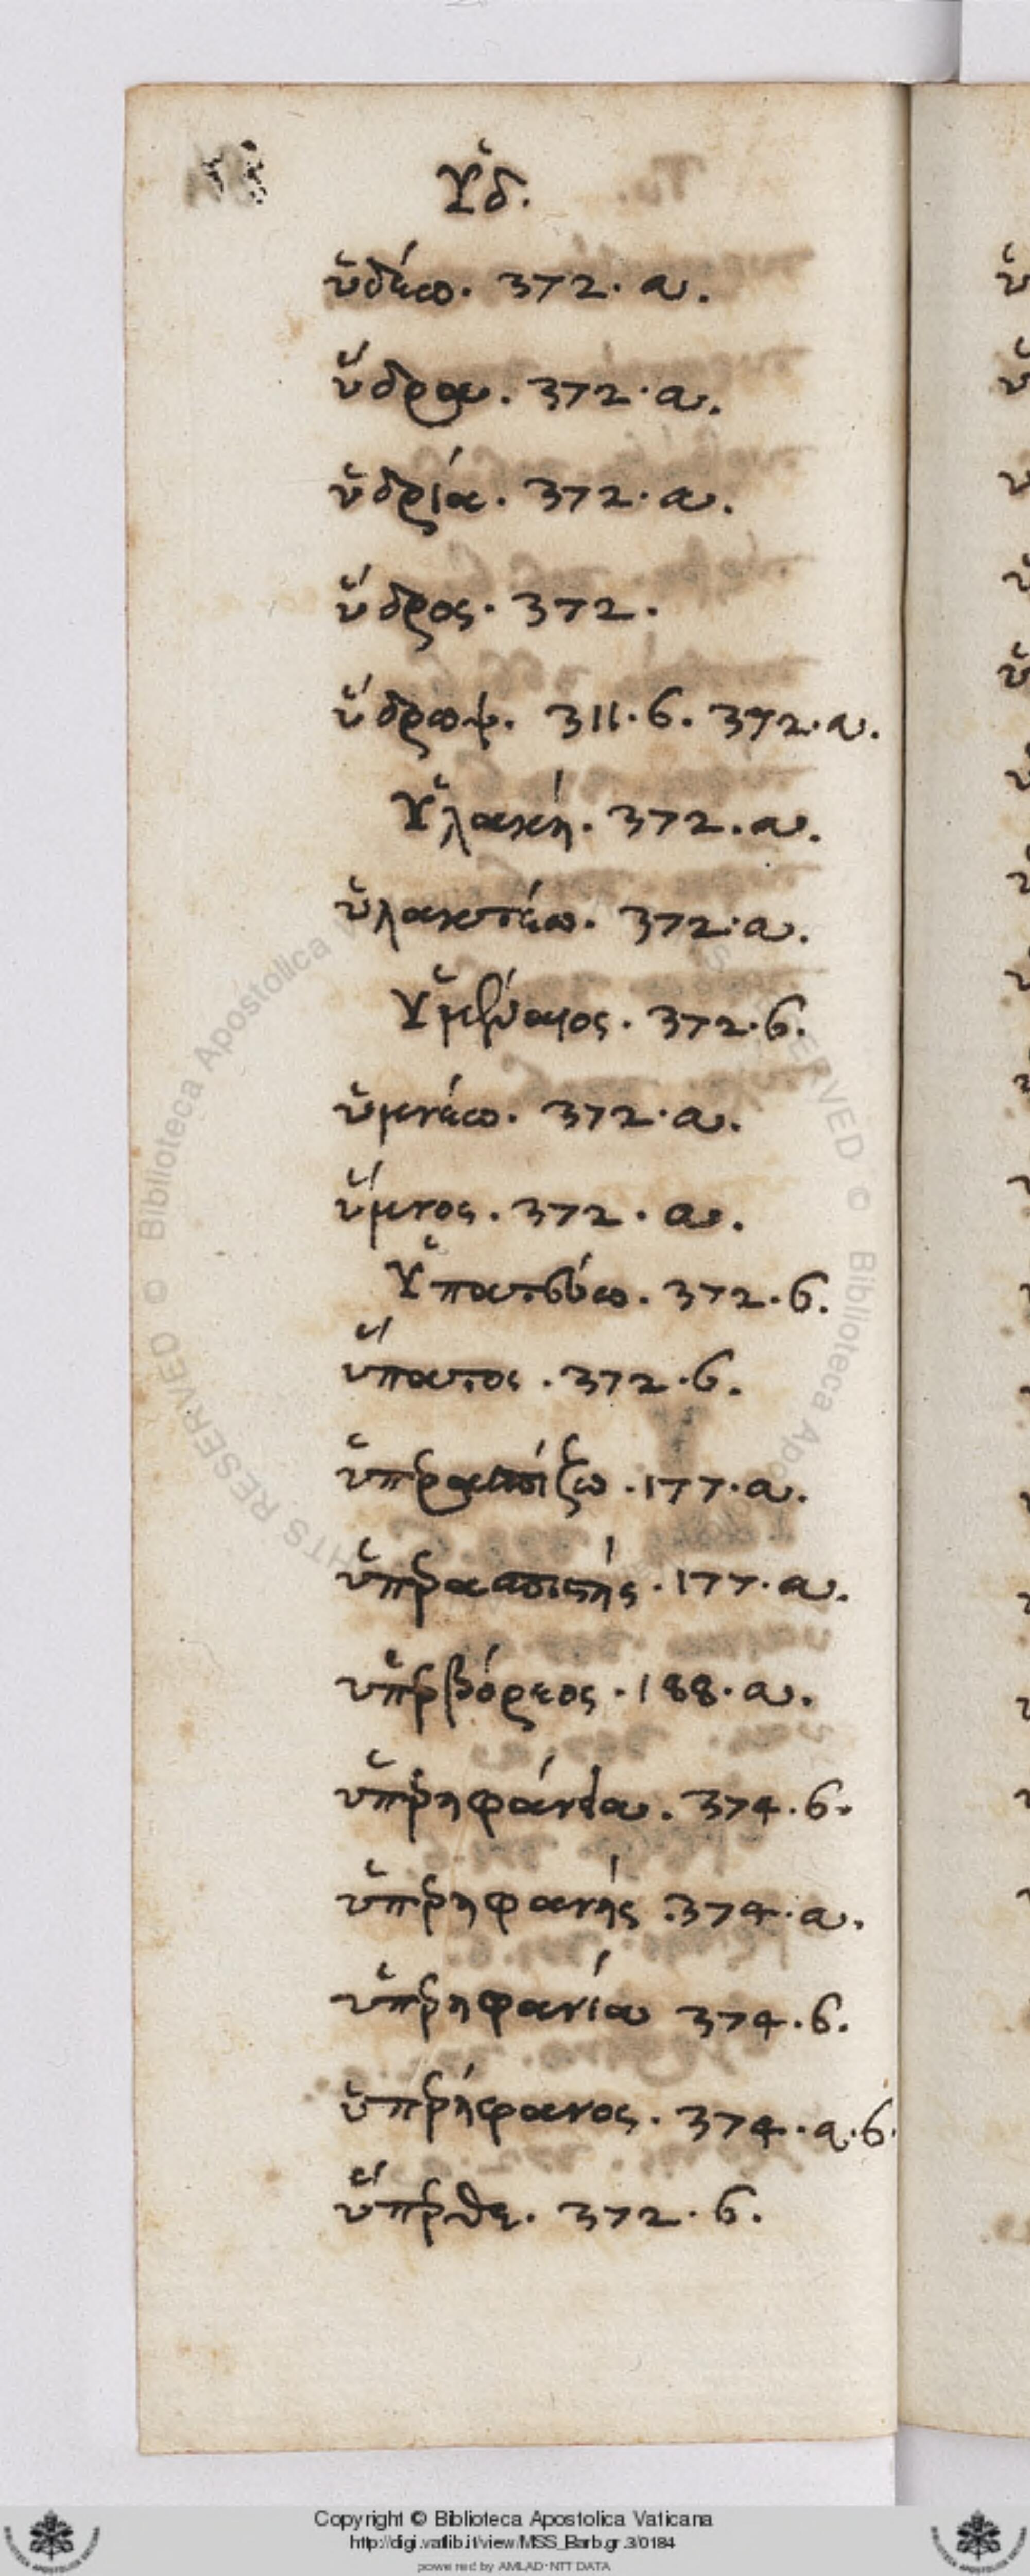 Ὑδ.
ὑδέω. 372. a.
ὕδρα. 372. a.
ὑδρία. 372. a.
ὕδρος. 372.
ὕδρωψ. 311. b. 372. a.
Ὑλακή. 372. a.
ὑλακτέω. 372. a.
372. b.
ὑμνέω. 372. a.
ὕμνος. 372. a.
Ὑπατεύω. 372. b.
ὕπατος. 372. b.
ὑπερασπίζω. 177. a.
ὑπερασπιστής. 177. a.
ὑπερβόρεος. 188. a.
ὑπερηφάνεια. 374. b.
ὑπερηφανής. 374. a.
ὑπερηφανία 374. b.
ὑπερήφανος. 374. a. b.
ὕπερθε. 372. b.
Copyright © Biblioteca Apostolica Vaticana
http://digi.vatlib.it/view/MSS_Barb.gr.3/0184
powered by AMLAD-NTT DATA